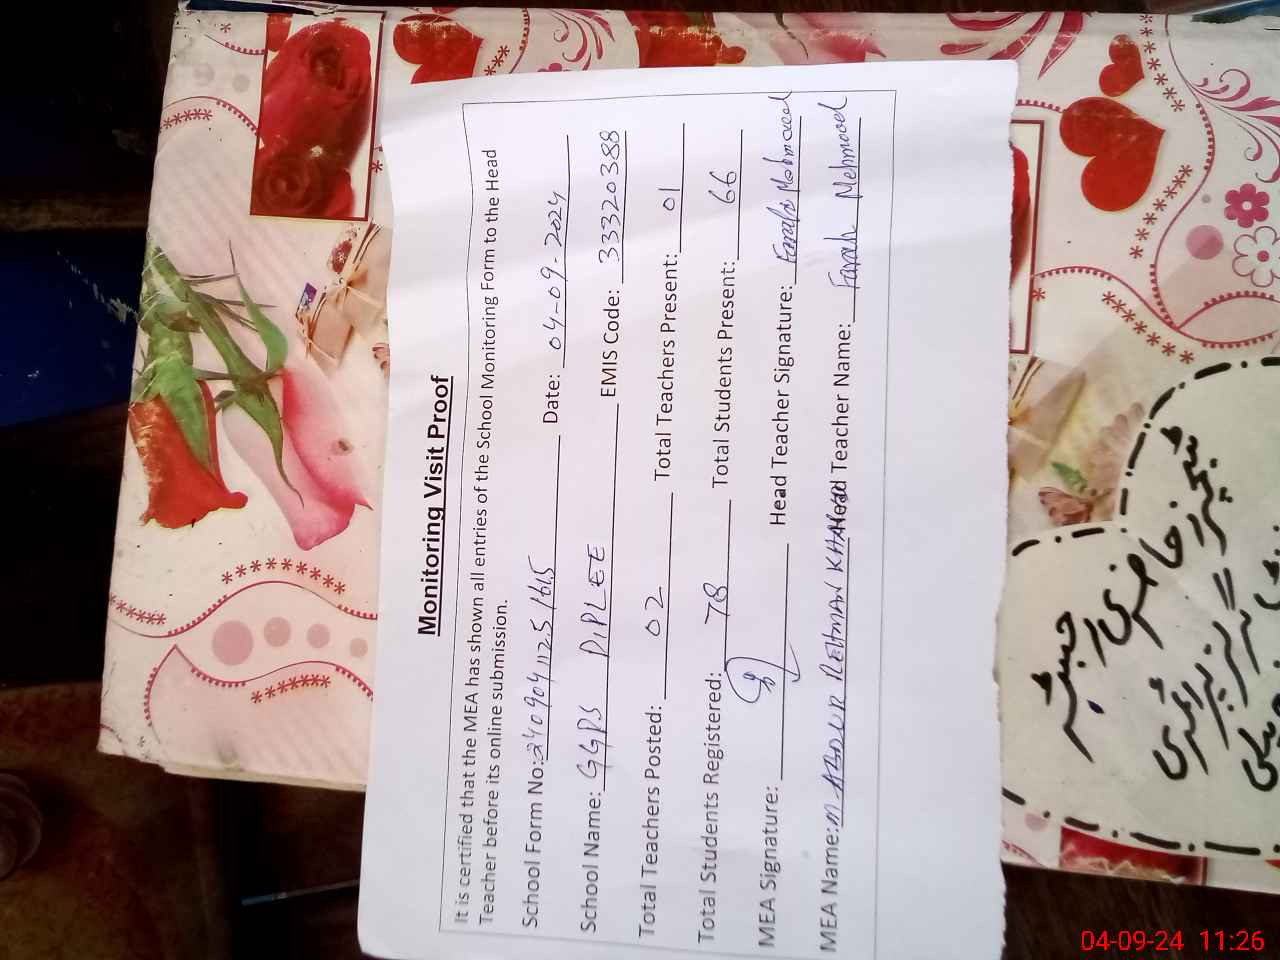 Monitoring Visit Proof
It is certified that the MEA has shown all entries of the School Monitoring Form to the Head
Teacher before its online submission.
School Form No: 240904112.51615 Date: 04-09-2024
School Name: GGPS PIPLEE EMIS Code: 33320388
Total Teachers Posted: 02 Total Teachers Present: 01
Total Students Registered: 78 Total Students Present: 66
MEA Signature: Head Teacher Signature: Farah Mehmood
MEA Name: M ABDUR REHMAN KHAN Head Teacher Name: Farah Mehmood
رجسٹر حاضری
گورنمنٹ گرلز پرائمری
04-09-24 11:26